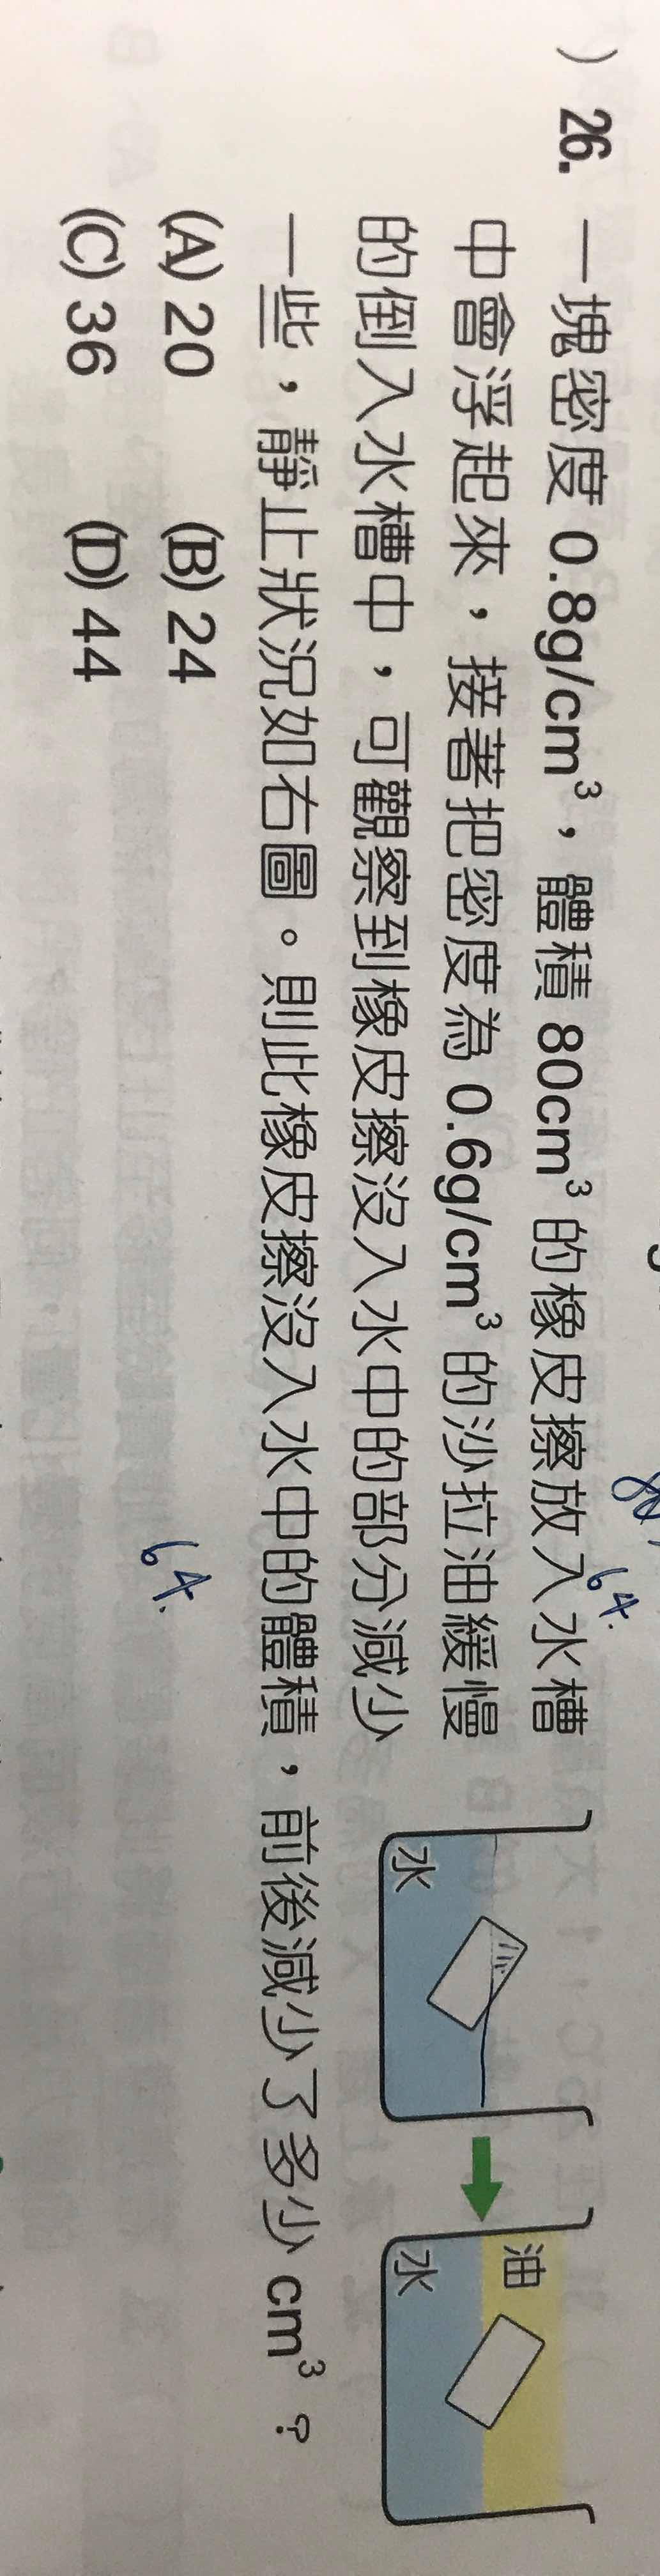 ) 26. 一塊密度 0.8g/cm³，體積 80cm³ 的橡皮擦放入水槽
中會浮起來，接著把密度為 0.6g/cm³ 的沙拉油緩慢
的倒入水槽中，可觀察到橡皮擦沒入水中的部分減少
一些，靜止狀況如右圖。則此橡皮擦沒入水中的體積，前後減少了多少 cm³？
(A) 20 (B) 24
(C) 36 (D) 44
水
油
水
64.
64.